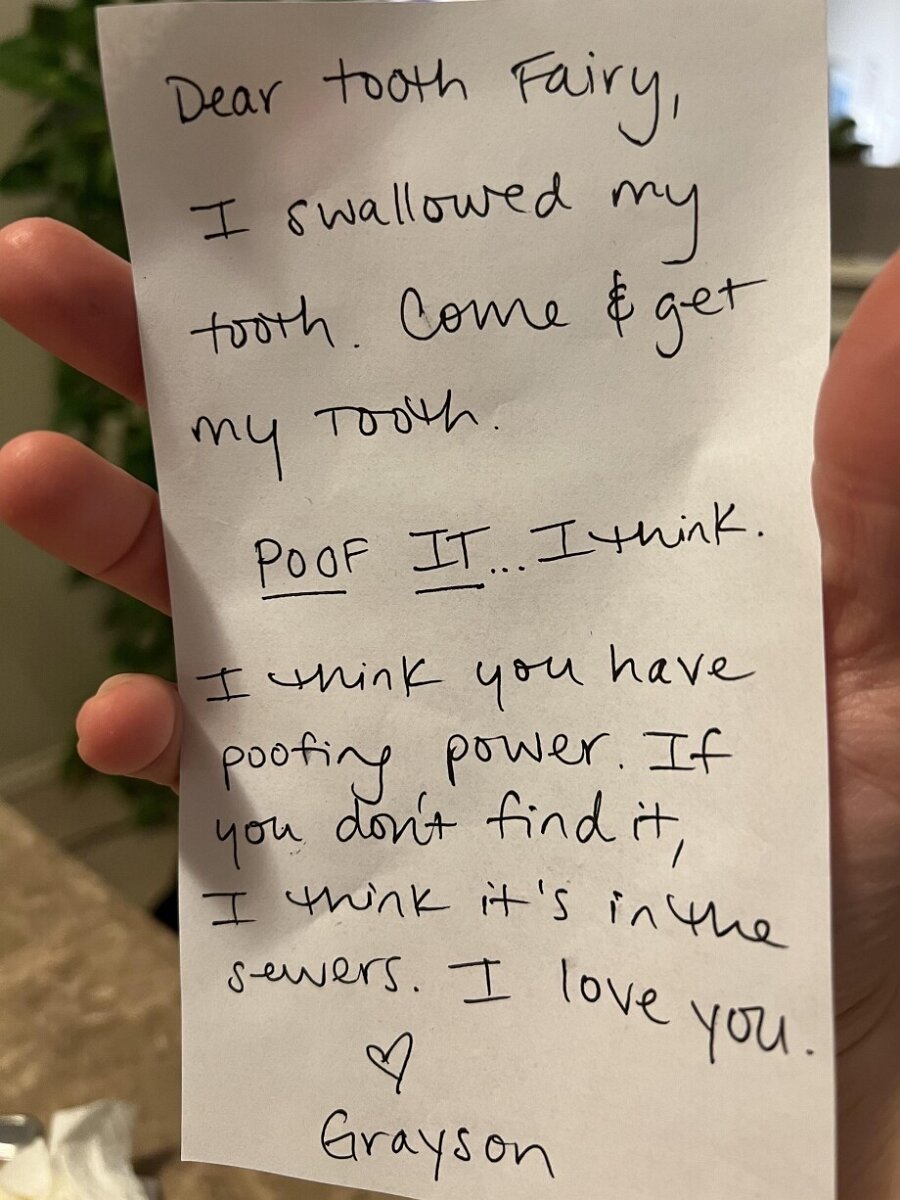 Dear tooth Fairy,
I swallowed my
tooth. Come & get
my Tooth.
POOF IT... I think.
I think you have
poofing power. If
you don't find it,
I think it's in the
sewers. I love you.
♡
Grayson